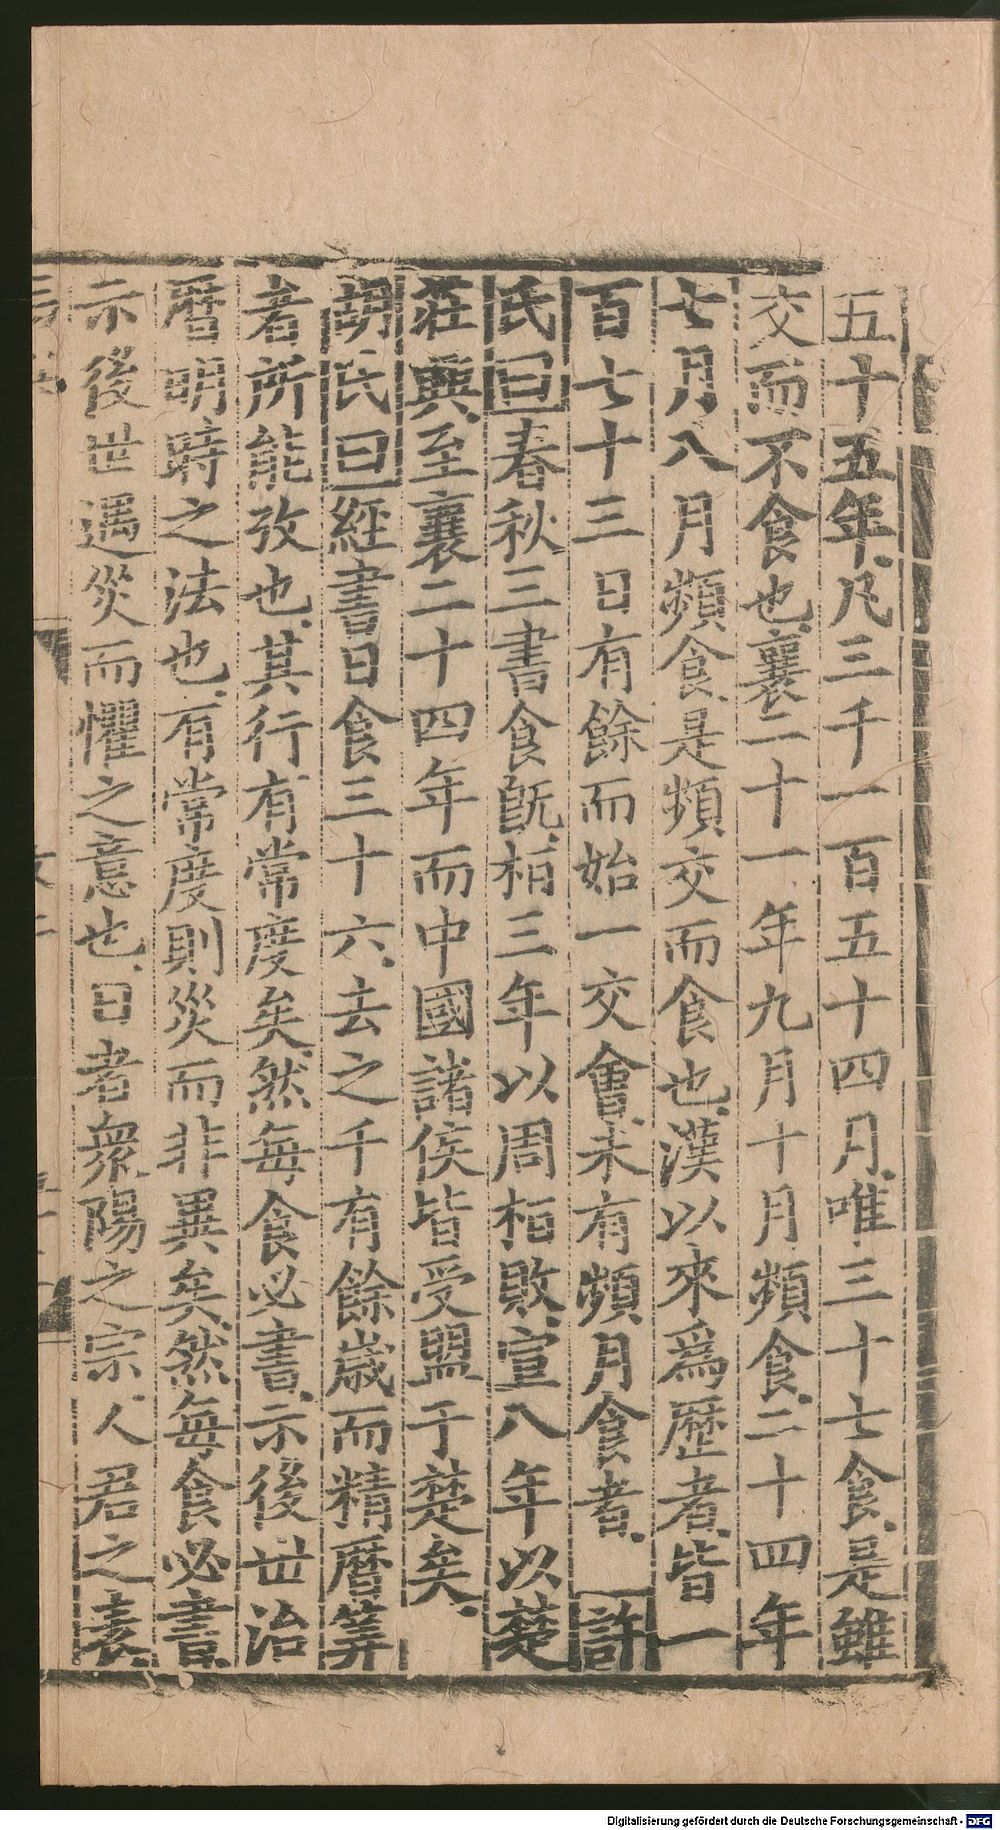 五十五年凡三千一百五十四月唯三十七食是雖
交而不食也襄二十一年九月十月頻食二十四年
七月八月頻食是頻交而食也漢以來爲歷者皆一
百七十三日有餘而始一交會未有頻月食者 許
氏曰春秋三書食旣桓三年以周桓敗宣八年以楚
莊興至襄二十四年而中國諸侯皆受盟于楚矣
胡氏曰經書日食三十六去之千有餘歲而精曆筭
者所能攷也其行有常度矣然每食必書示後世治
曆明時之法也有常度則災而非異矣然每食必書
示後世遇災而懼之意也日者衆陽之宗人君之表
Digitalisierung gefördert durch die Deutsche Forschungsgemeinschaft - DFG